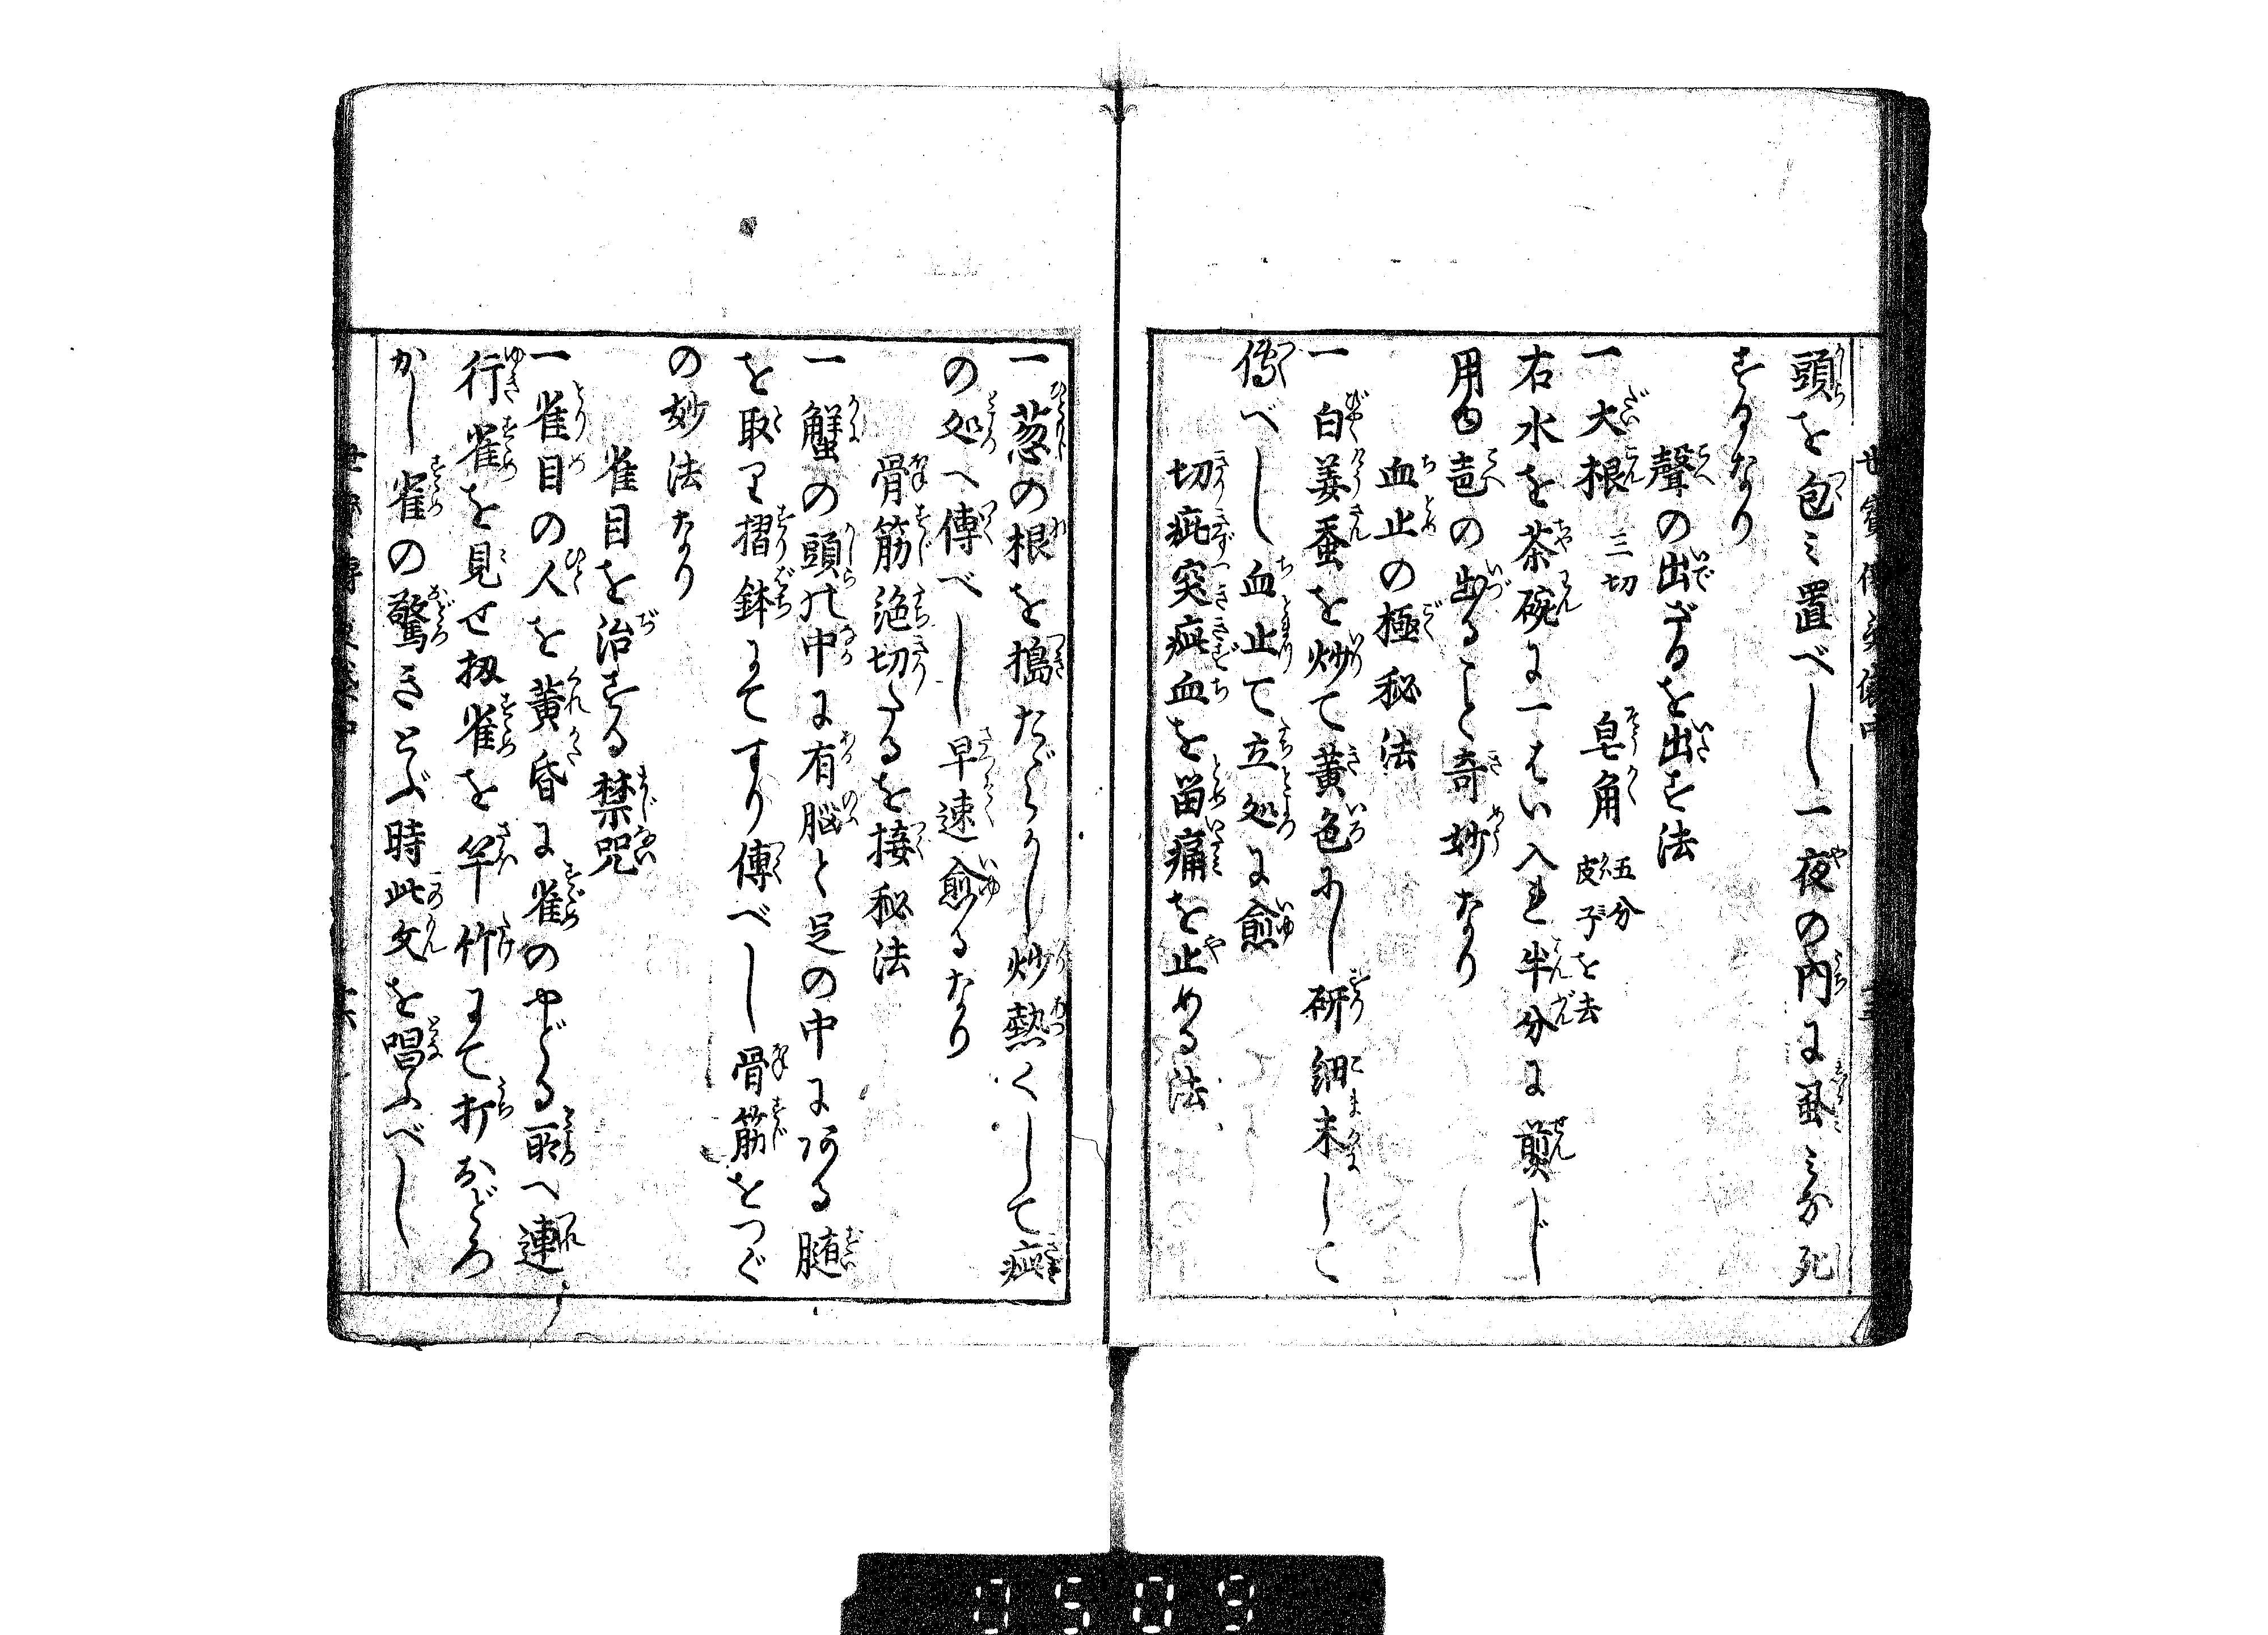 頭を包ミ置べし一夜の内に虱ミな死
するなり
聲の出ざるを出す法
一大根 三切 皂角 五分 皮子を去
右水を茶碗に一はい入れ半分に煎じ
用ゆ聲の出ること奇妙なり
血止の極秘法
一白姜蚕を炒て黄色にし研細末して
傳べし血止て立処に愈
切疵突疵血を留痛を止める法
一葱の根を搗たゞらかし炒熱くして疵
の処へ傳べし早速愈るなり
骨筋絶切たるを接秘法
一蟹の頭の中に有脳と足の中にある髄
を取り摺鉢にてすり傳べし骨筋をつぐ
の妙法なり
雀目を治する禁咒
一雀目の人を黄昏に雀のやどる所へ連
行雀を見せ扨雀を竿竹にて打おどろ
かし雀の驚きとぶ時此文を唱ふべし
0509